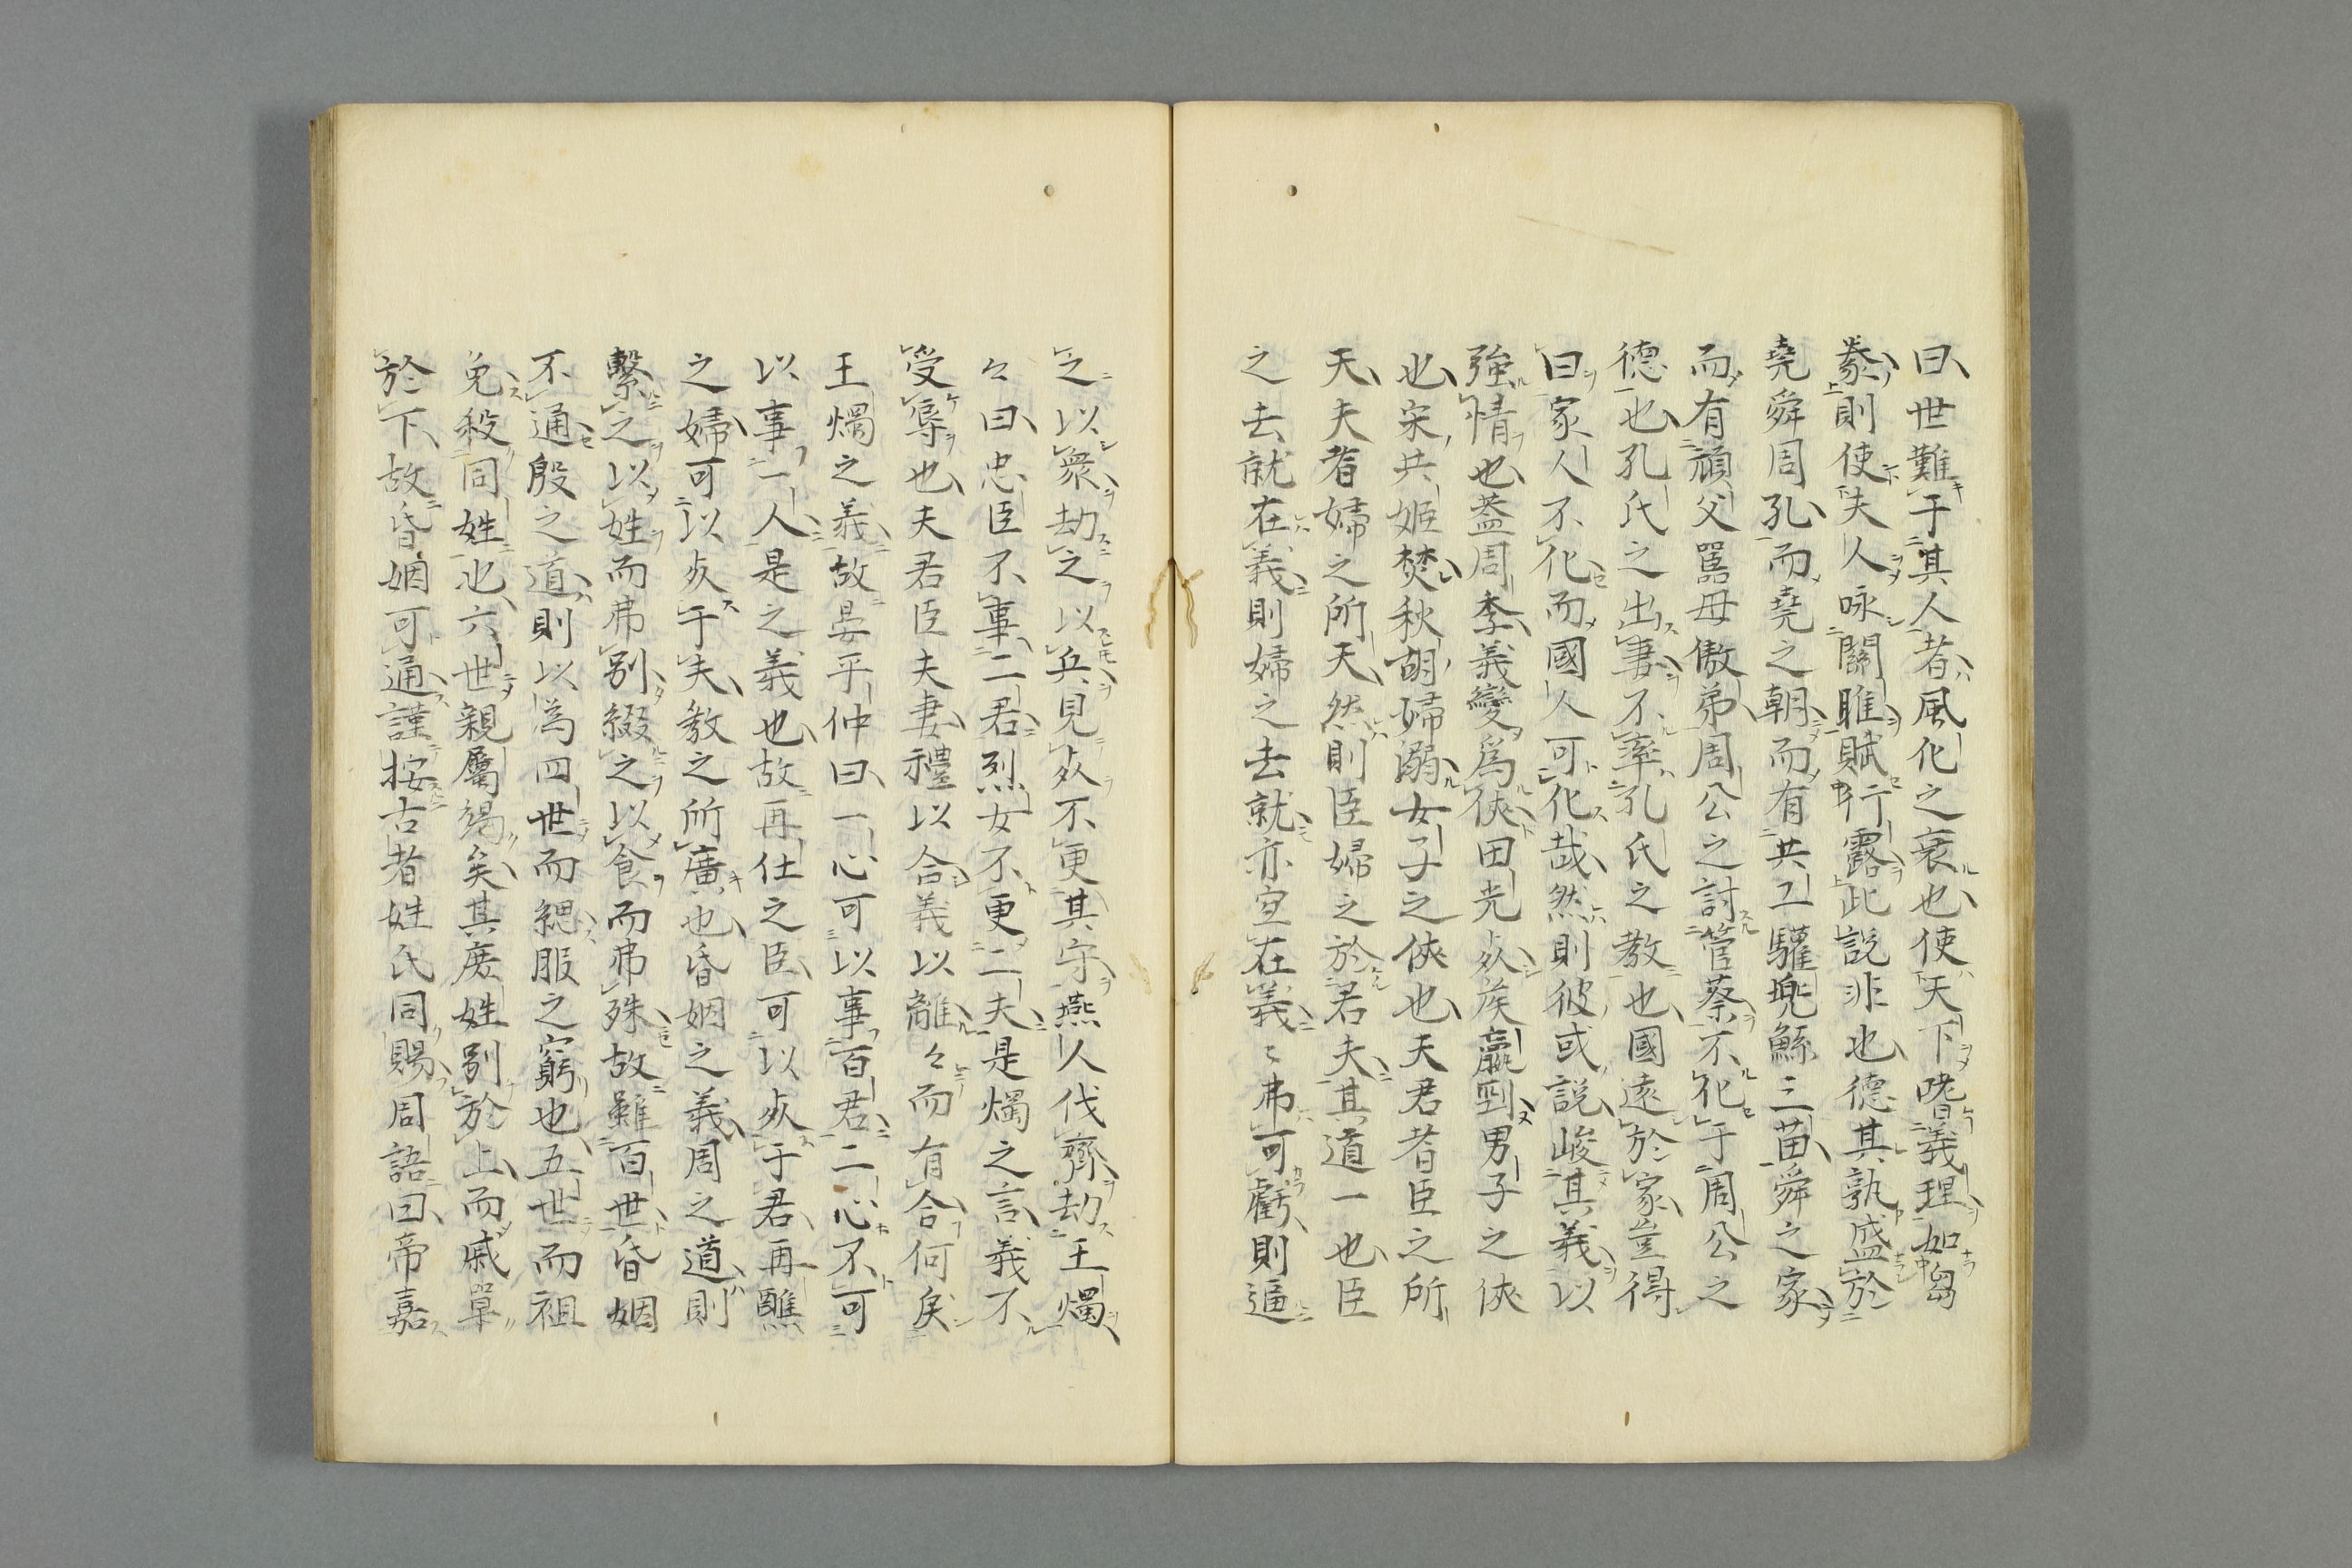 曰世難于其人者風化之衰也使天下嗜義理如芻
豢則使夫人咏關雎賦行露此説非也德其孰盛於
堯舜周孔而堯之朝而有共工驩兜鯀三苗舜之家
而有頑父嚚母傲弟周公之討管蔡不化于周公之
德也孔氏之出妻不率孔氏之教也國遠於家豈得
曰家人不化而國人可化哉然則彼或説峻其義以
強情也蓋周季義變爲俠田光死矦嬴剄男子之俠
也宋共姬焚秋胡婦溺女子之俠也天君者臣之所
天夫者婦之所天然則臣婦之於君夫其道一也臣
之去就在義則婦之去就亦宜在義〻弗可虧則逼
之以衆劫之以兵見死不更其守燕人伐齊劫王燭
々曰忠臣不事二君烈女不更二夫是燭之言義不
受辱也夫君臣夫妻禮以合義以離々而有合何矣
王燭之義故晏平仲曰一心可以事百君二心不可
以事一人是之義也故再仕之臣可以死于君再醮
之婦可以死于夫教之所廣也昏姻之義周之道則
繫之以姓而弗别綴之以食而弗殊故雖百世昏姻
不通殷之道則以為四世而緦服之窮也五世而袒
免殺同姓也六世親屬竭矣其庶姓别於上而戚單
於下故昏姻可通謹按古者姓氏同賜周語曰帝嘉